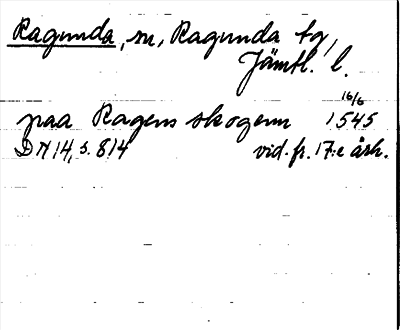 Ragunda, sn, Ragunda tg,
Jämtl. l.
paa Ragens skogenn 16/6 1545
DN 14, s. 814 vid. fr. 17:e årh.